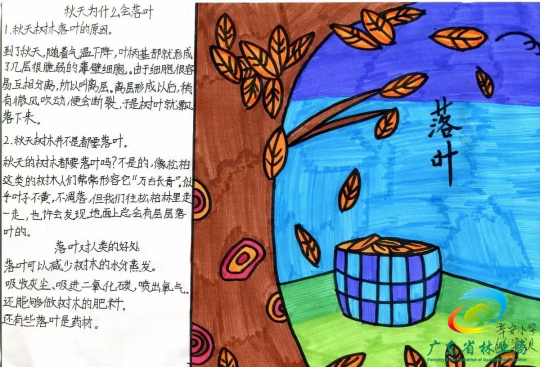 秋天为什么会落叶
1.秋天树木落叶的原因。
到了秋天,随着气温下降,叶柄基部就形成
了几层很脆弱的薄壁细胞。由于细胞很容
易互相分离,所以叫离层。离层形成以后,稍
有微风吹动,便会断裂,于是树叶就飘
落下来。
2.秋天树木并不是都要落叶。
秋天的树木都要落叶吗?不是的,像松柏
这类的树木人们常常形容它"万古长青"。似
乎叶子不黄,不凋落,但我们往松柏林里走
一走,也许会发现地面上总会有层层落
叶的。
落叶对人类的好处
落叶可以减少树木的水分蒸发。
吸收灰尘、吸进二氧化碳,喷出氧气。
还能够做树木的肥料。
还有些落叶是药材。
落叶
广东省林业局